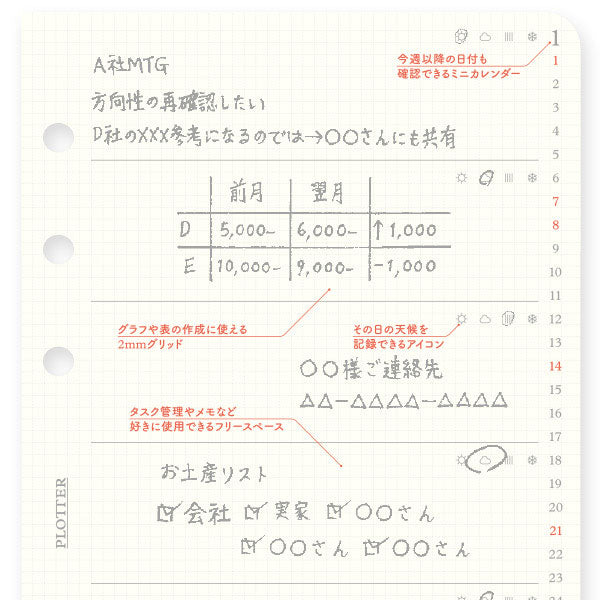 1
今週以降の日付も
確認できるミニカレンダー
1
2
3
4
5
A社MTG
方向性の再確認したい
D社のXXX参考になるのでは→○○さんにも共有
6
7
8
9
10
11
前月 翌月
D 5,000- 6,000- ↑1,000
E 10,000- 9,000- -1,000
グラフや表の作成に使える
2mmグリッド
その日の天候を
記録できるアイコン
12
13
14
15
16
17
○○様ご連絡先
△△-△△△△-△△△△
タスク管理やメモなど
好きに使用できるフリースペース
18
19
20
21
22
23
24
お土産リスト
会社 実家 ○○さん
○○さん ○○さん
PLOTTER